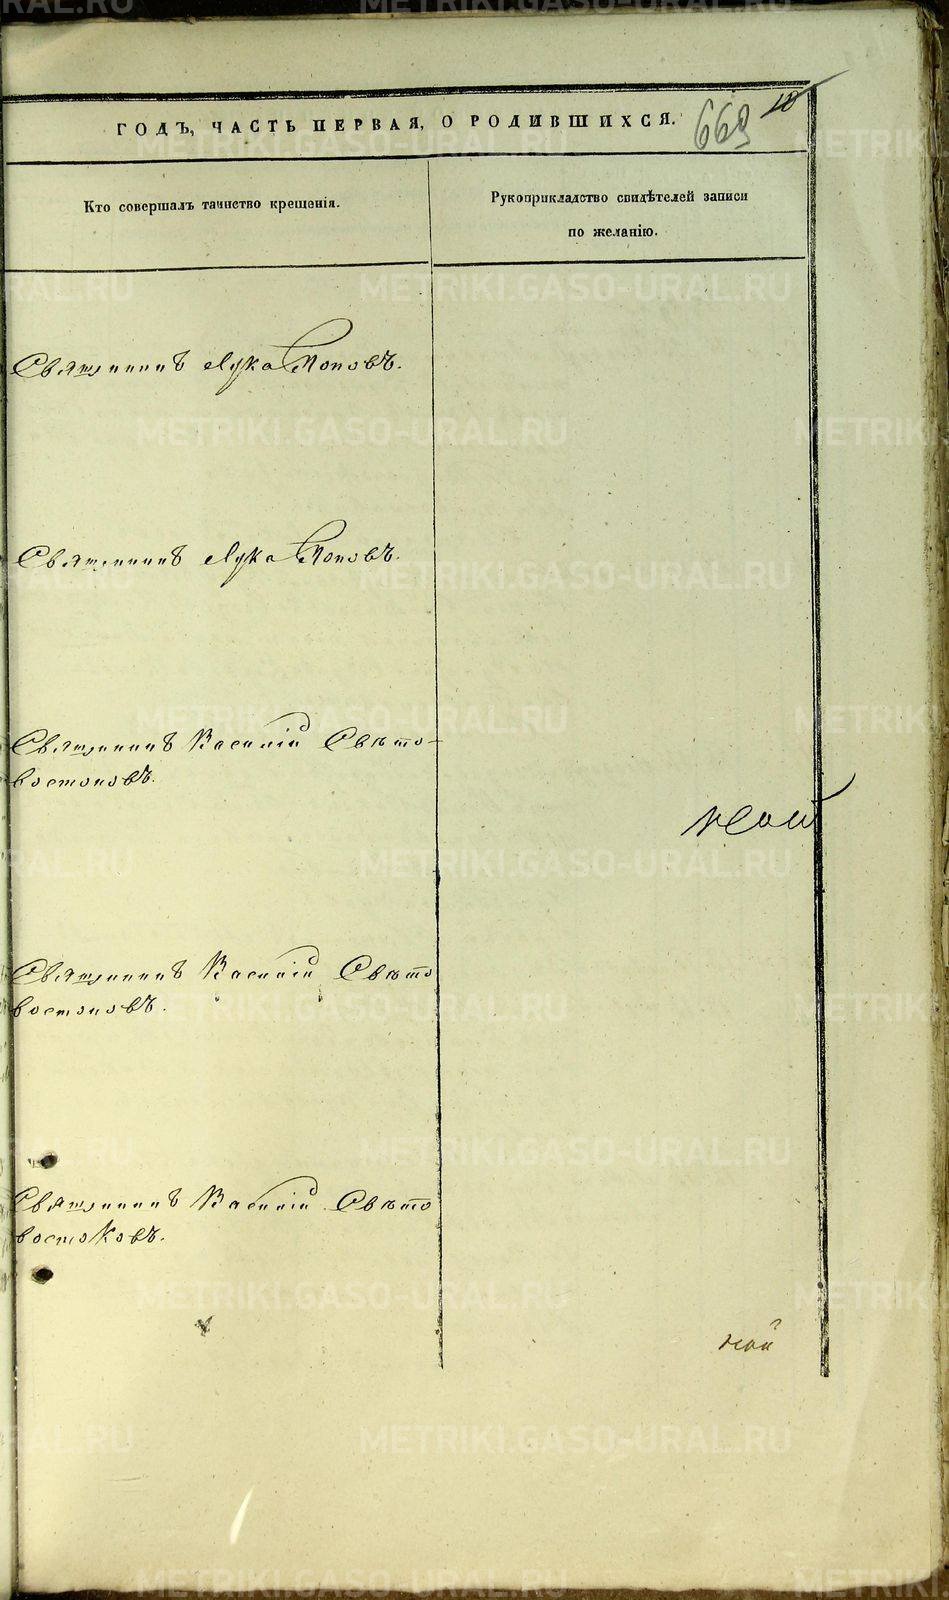 ГОДЪ, ЧАСТЬ ПЕРВАЯ, О РОДИВШИХСЯ.
669 10
Кто совершалъ таинство крещенія.
Рукоприкладство свидѣтелей записи
по желанію.
Священникъ Лука Поповъ.
Священникъ Лука Поповъ.
Священникъ Василій Свѣто-
востоковъ.
Священникъ Василій Свѣто
востоковъ.
Священникъ Василій Свѣто
востоковъ.
METRIKI.GASO-URAL.RU